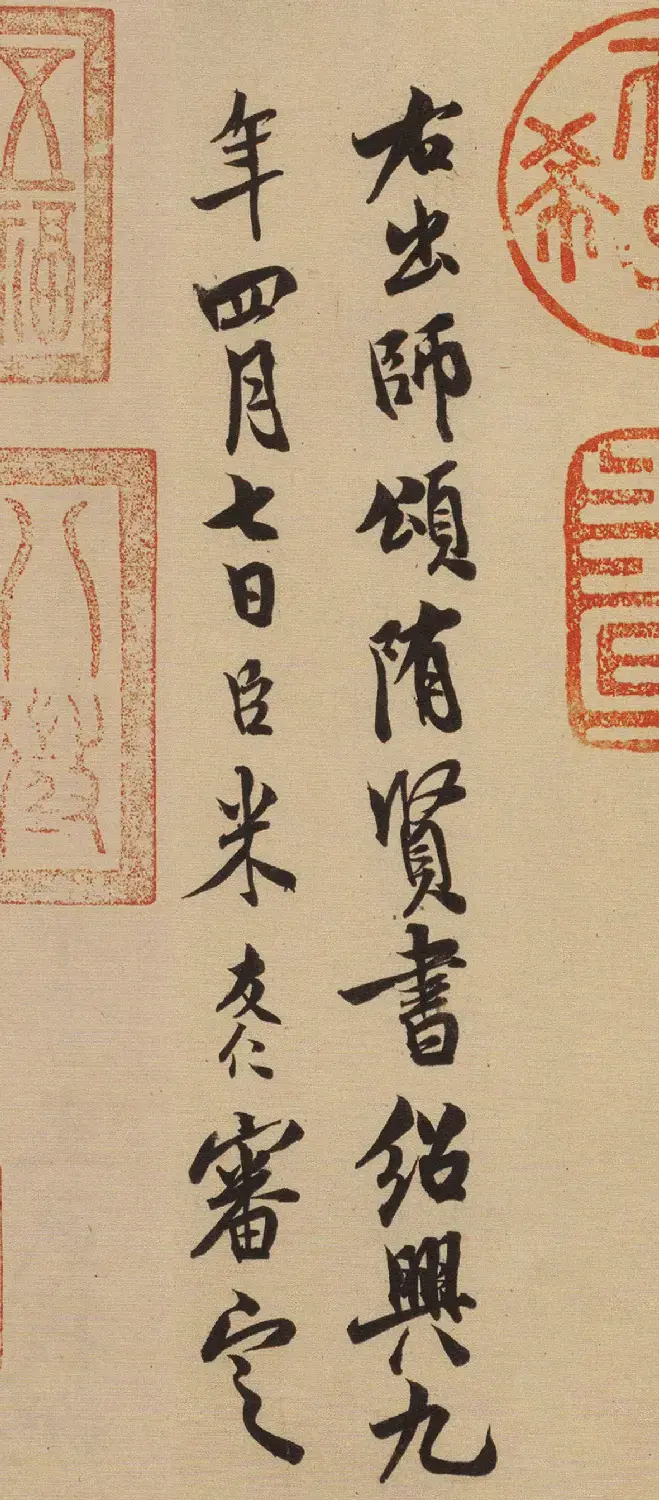 右出師頌隋賢書紹興九
年四月七日臣米友仁審定
希
五福
八徵